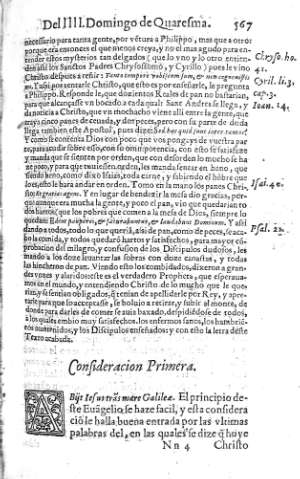 Del IIII. Domingo de Quaresma. 567
necessario para tanta gente, por vẽtura a Philippo, mas que a otro
porque era entonces el que menos creya, y no el mas agudo para en-
tender estos mysterios tan delgados (que lo vno y lo otro entien-
den assi los Sanctos Padres Chrysostomo, y Cyrillo) pues le vino
Christo despues a reñir: Tanto tempore vobiscum sum, & non cognouistis
me. Y assi, por
a Philippo. Responde le, que dozientos Reales de pan no bastarian,
para que alcançasse vn bocado a cada qual: Sanct Andres llega, y da
noticia a Christo, que vn mochacho viene alli entre la gente, que
traya cinco panes de ceuada, y dos peces, pero con su parte de desda
llega tambien este Apostol, pues dize: Sed hæc quid sunt inter tantos?
Y como se contenta Dios con poco que vos pongays de vuestra par-
te, trazando el suplir esso, con su omnipotencia, con esto se satisfaze
y manda que se sienten por orden, que con desorden lo mucho se ha
ze poco, y para que tuuiessen orden, les manda sentar en heno, que
siendo heno, como dixo Isaias, toda carne, y sabiendo el hõbre que
lo es, esto le hara andar en orden. Tomo en la mano los panes Chri-
sto, gratias agens. Y en lugar de bendezir la mesa dio gracias, por-
que aunque era mucha la gente, y poco el pan, vio que quedarian to
dos hartos (que los pobres que comen a la mesa de Dios, siempre lo
quedan) Edent pauperes, & saturabuntur, & laudabunt Dominum. Y assi
dando a todos, todo lo que querian, assi de pan, como de peces, se aca-
bo la comida, y todos quedarõ hartos y satisfechos, para mayor cõ-
probacion del milagro, y confusion de los Discipulos dudosos, les
mando a los doze leuantar las sobras con doze canastas, y todas
las hincheron de pan. Viendo esto los combidados, dixeron a gran-
des vozes y alaridos: este es el verdadero Propheta, que esperaua-
mos en el mundo, y entendiendo Christo de lo mucho que le que-
rian, y se sentian obligados, q̃ tenian de apellidarle por Rey, y apre-
tarle para que lo acceptasse, se boluio a retirar, y subir al monte, de
donde para darles de comer se auia baxado, despidiẽdose de todos,
a los quales embio muy satisfechos, los enfermos sanos, los hambriẽ-
tos mantenidos, y los Discipulos enseñados: y con esto la letra deste
Texto acabada.
Chryso. ho.
42.
Cyril. li. 3.
cap. 3.
Ioan. 14.
Isai. 40.
Psal. 21.
Consideracion Primera.
ABijt Iesus trãs mare Galileæ. El principio de-
ste Euãgelio se haze facil, y esta considera
ciõ le halla buena entrada por las vltimas
palabras del, en las quales se dize q̃ huye
Nn 4 Christo